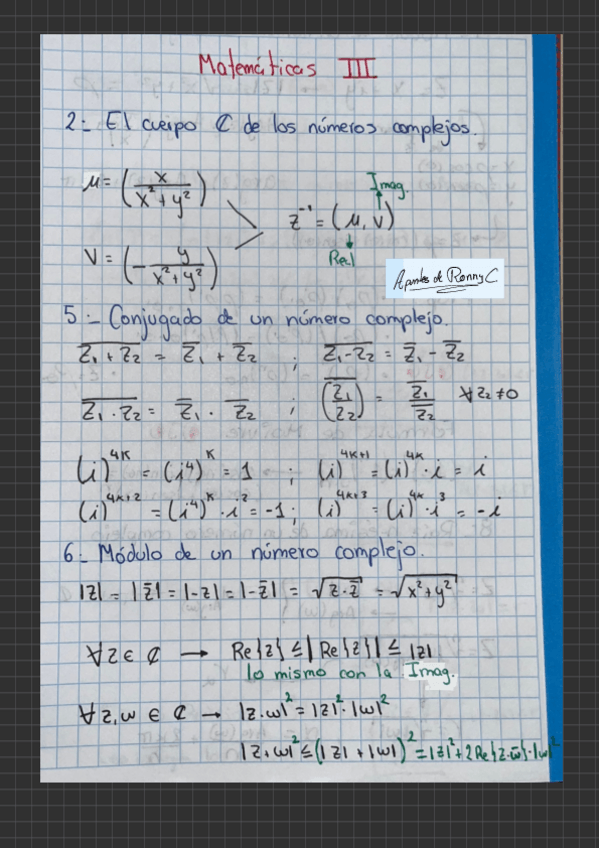 Matemáticas III
2.- El cuerpo ₵ de los números complejos.
μ = (x / (x² + y²))
Imag.
z⁻¹ = (μ, v)
Real
v = (- y / (x² + y²))
Apuntes de Ronny C.
5.- Conjugado de un número complejo.
\overline{z₁ + z₂} = \overline{z}₁ + \overline{z₂} ; \overline{z₁ - z₂} = \overline{z}₁ - \overline{z₂}
\overline{z₁ · z₂} = \overline{z}₁ · \overline{z₂} ; \overline{(z₁/z₂)} = \overline{z₁}/\overline{z₂} ∀ z₂ ≠ 0
(i)^{4k} = (i⁴)^k = 1 ; (i)^{4k+1} = (i)^{4k} · i = i
(i)^{4k+2} = (i⁴)^k · i² = -1 ; (i)^{4k+3} = (i)^{4k} · i³ = -i
6.- Módulo de un número complejo.
|z| = |\overline{z}| = |-z| = |-\overline{z}| = √(z · \overline{z}) = √(x² + y²)
∀ z ∈ ₵ → Re{z} ≤ |Re{z}| ≤ |z|
lo mismo con la Imag.
∀ z, w ∈ ₵ → |z · w|² = |z|² · |w|²
|z + w|² ≤ (|z| + |w|)² = |z|² + 2Re{z · \overline{w}} · |w|²